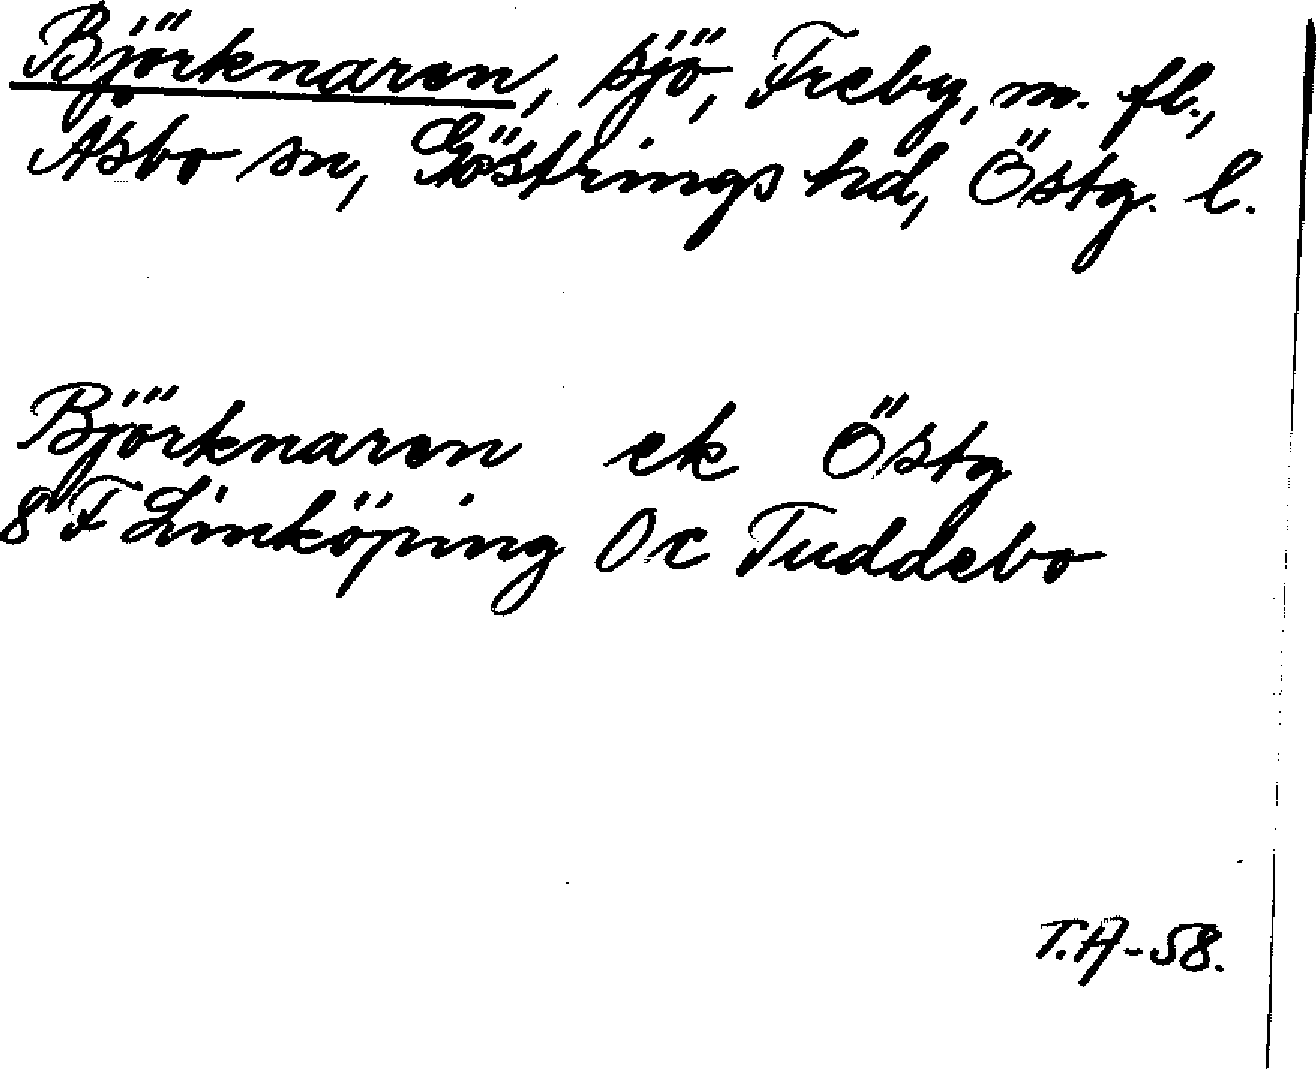 Björknaren, sjö, Freby, m. fl.,
Åsbo sn, Göstrings hd, Östg. l.
Björknaren ek Östg
8 F Linköping Oc Tuddebo
T.A-58.